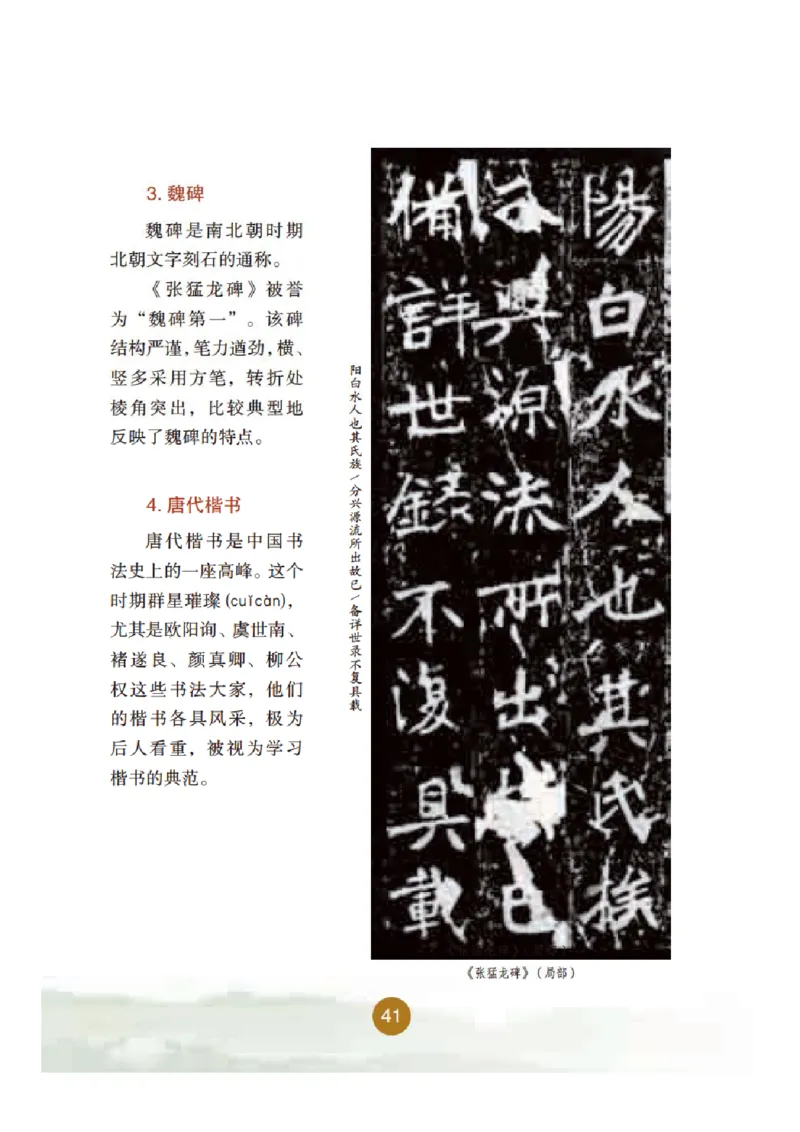 3. 魏碑
魏碑是南北朝时期
北朝文字刻石的通称。
《张猛龙碑》被誉
为“魏碑第一”。该碑
结构严谨，笔力遒劲，横、
竖多采用方笔，转折处
棱角突出，比较典型地
反映了魏碑的特点。
4. 唐代楷书
唐代楷书是中国书
法史上的一座高峰。这个
时期群星璀璨(cuǐcàn)，
尤其是欧阳询、虞世南、
褚遂良、颜真卿、柳公
权这些书法大家，他们
的楷书各具风采，极为
后人看重，被视为学习
楷书的典范。
阳白水人也其氏族/分兴源流所出故已/备详世录不复具载
陽白水人也其氏族
興源流所出已
備詳世錄不復具載
《张猛龙碑》（局部）
41